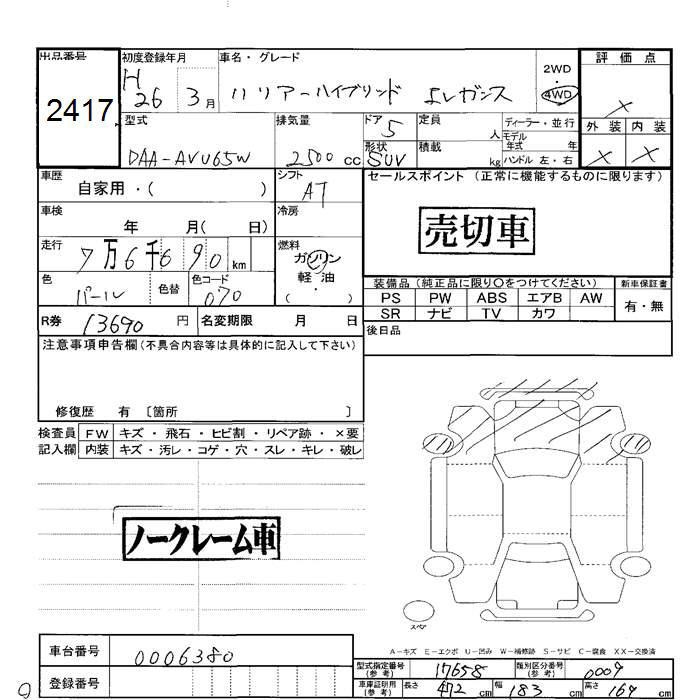 出品番号 初度登録年月 車名・グレード 2WD 評価点
2417 H 26 3月 ハリアーハイブリッド エレガンス ・ 4WD ×
型式 排気量 ドア 5 定員 人 ディーラー・並行 外装 内装
DAA-AVU65W 2500 cc 形状 SUV 積載 kg モデル年式 年 ハンドル 左・右 × ×
車歴 シフト セールスポイント (正常に機能するものに限ります)
自家用・( ) AT
車検 冷房 売切車
年 月( 日)
走行 燃料
7万6千690 km ガソリン
色 色替 色コード 軽油 装備品 (純正品に限り○をつけてください) 新車保証書
パール 070 ・( ) PS PW ABS エアB AW 有・無
R券 13690 円 名変期限 月 日 SR ナビ TV カワ
注意事項申告欄(不具合内容等は具体的に記入して下さい) 後日品
修復歴 有 〔箇所 〕
検査員 FW キズ・飛石・ヒビ割・リペア跡・×要
記入欄 内装 キズ・汚レ・コゲ・穴・スレ・キレ・破レ
ノークレーム車
スペア
A-キズ E-エクボ U-凹み W-補修跡 S-サビ C-腐食 XX-交換済
車台番号 0006380 型式指定番号(参考) 17658 類別区分番号(参考) 0009
登録番号 車庫証明用(参考) 長さ 472 cm 幅 183 cm 高さ 169 cm